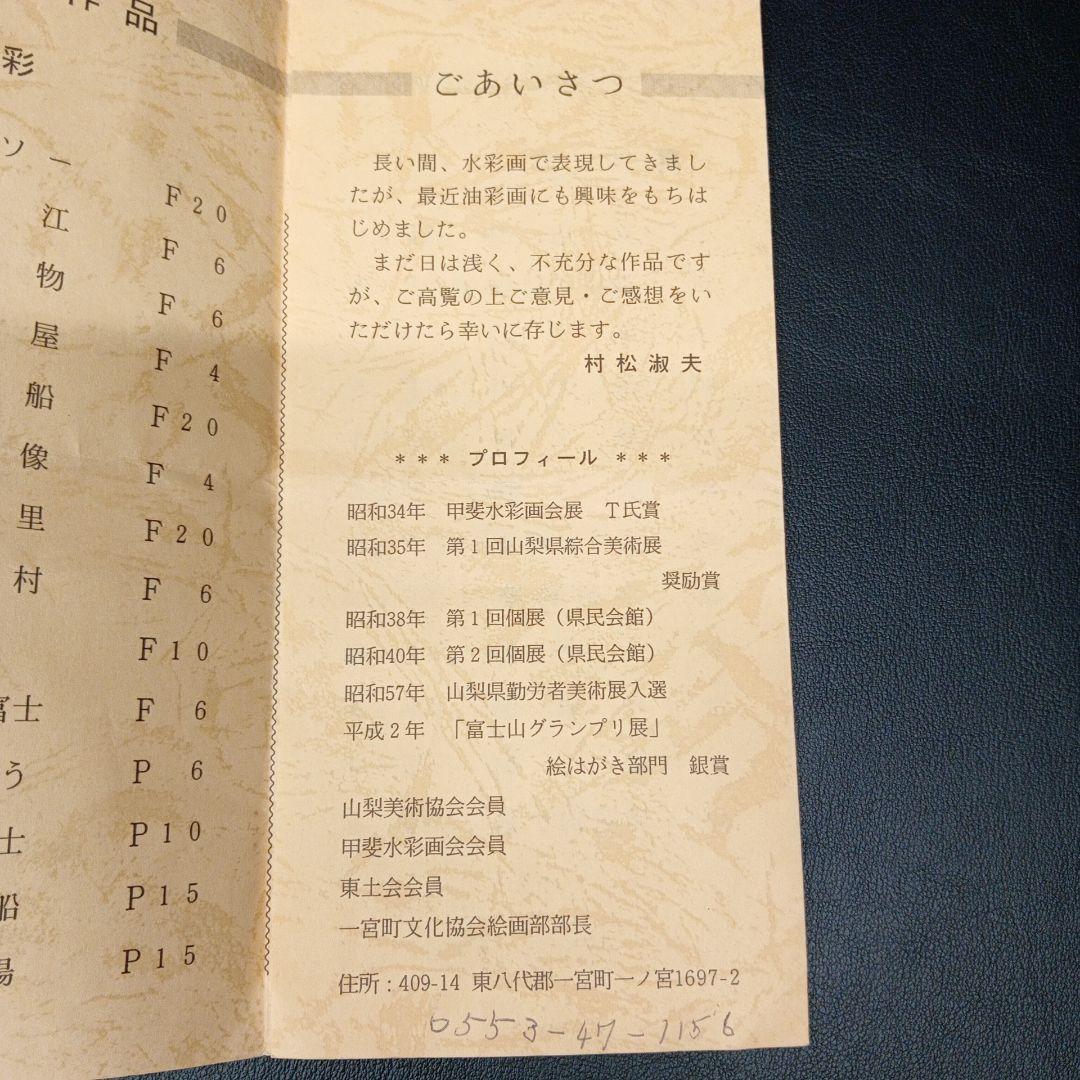 作品
彩
ソー
F20
江 F 6
物 F 6
屋 F 4
船 F20
像 F 4
里 F20
村 F 6
F10
富士 F 6
う P 6
士 P10
船 P15
場 P15
ごあいさつ
長い間、水彩画で表現してきまし
たが、最近油彩画にも興味をもちは
じめました。
まだ日は浅く、不充分な作品です
が、ご高覧の上ご意見・ご感想をい
ただけたら幸いに存じます。
村松淑夫
*** プロフィール ***
昭和34年 甲斐水彩画会展 T氏賞
昭和35年 第1回山梨県綜合美術展
奨励賞
昭和38年 第1回個展(県民会館)
昭和40年 第2回個展(県民会館)
昭和57年 山梨県勤労者美術展入選
平成2年 「富士山グランプリ展」
絵はがき部門 銀賞
山梨美術協会会員
甲斐水彩画会会員
東土会会員
一宮町文化協会絵画部部長
住所:409-14 東八代郡一宮町一ノ宮1697-2
0553-47-1156